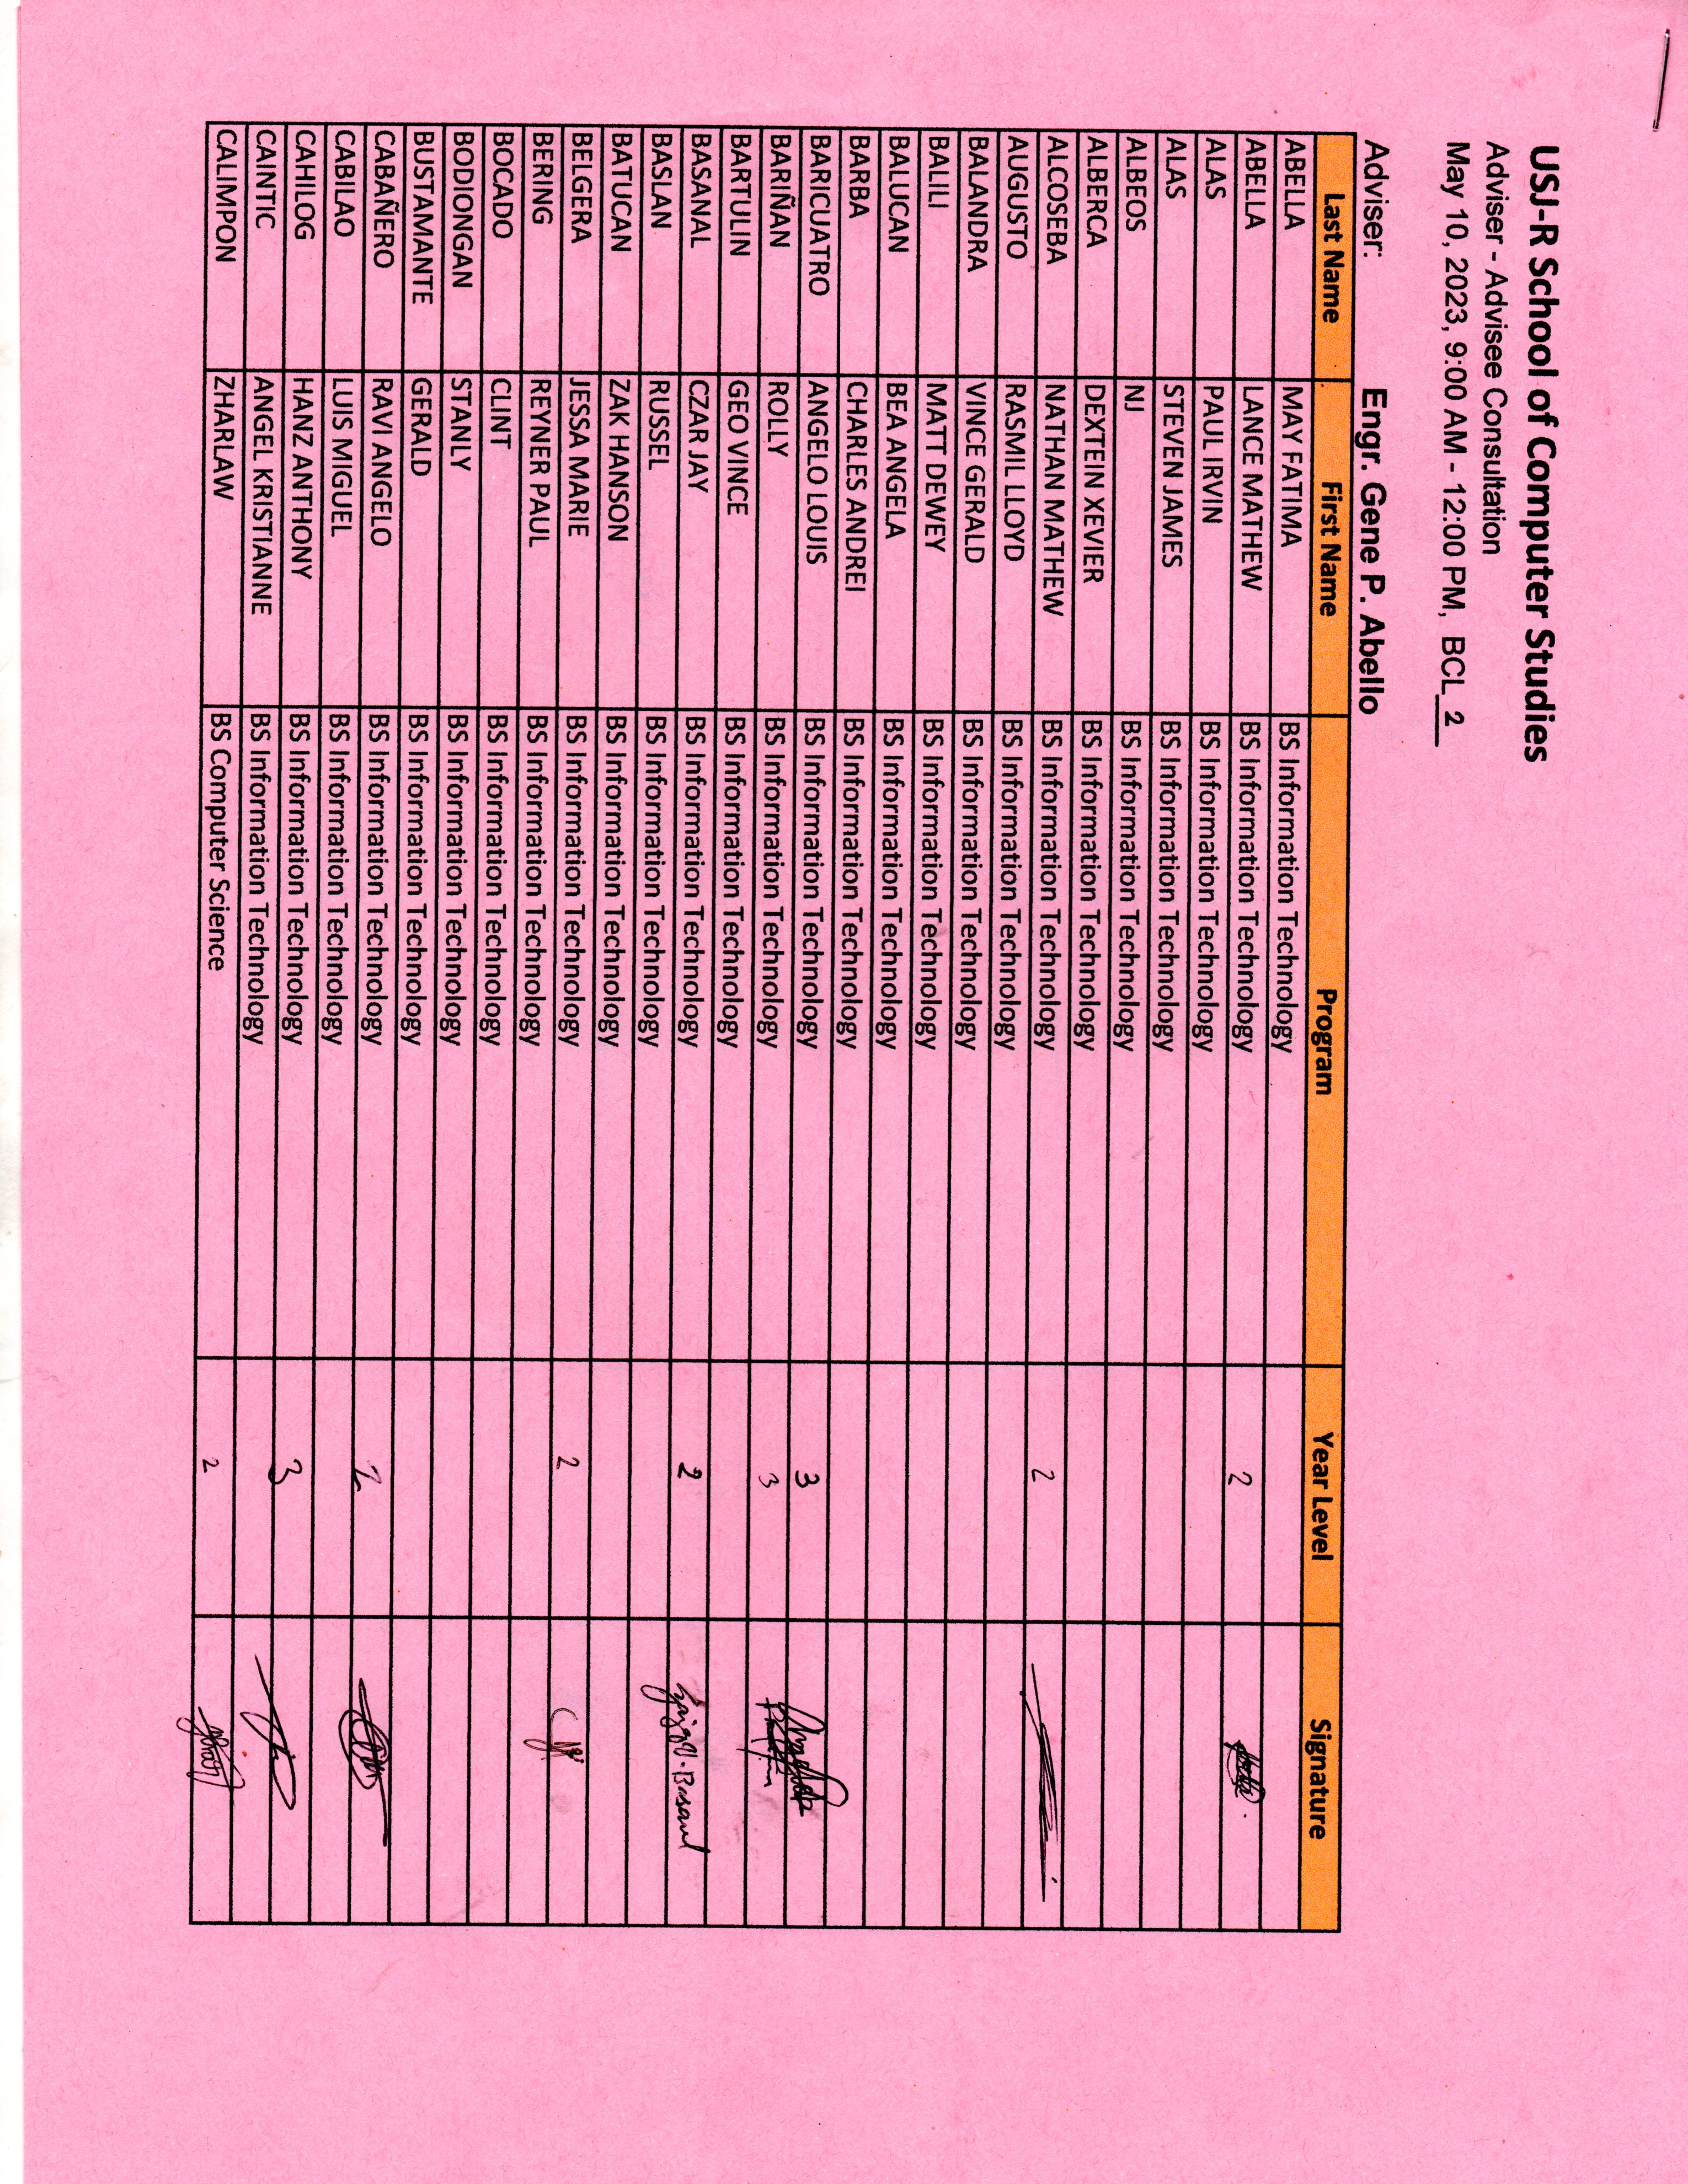 USJ-R School of Computer Studies
Adviser - Advisee Consultation
May 10, 2023, 9:00 AM - 12:00 PM, BCL_2_
Adviser: Engr. Gene P. Abello
Last Name First Name Program Year Level Signature
ABELLA MAY FATIMA BS Information Technology
ABELLA LANCE MATHEW BS Information Technology 2
ALAS PAUL IRVIN BS Information Technology
ALAS STEVEN JAMES BS Information Technology
ALBEOS NJ BS Information Technology
ALBERCA DEXTEIN XEVIER BS Information Technology
ALCOSEBA NATHAN MATHEW BS Information Technology 2
AUGUSTO RASMIL LLOYD BS Information Technology
BALANDRA VINCE GERALD BS Information Technology
BALILI MATT DEWEY BS Information Technology
BALUCAN BEA ANGELA BS Information Technology
BARBA CHARLES ANDREI BS Information Technology
BARICUATRO ANGELO LOUIS BS Information Technology 3
BARIÑAN ROLLY BS Information Technology 3
BARTULIN GEO VINCE BS Information Technology
BASANAL CZAR JAY BS Information Technology 2
BASLAN RUSSEL BS Information Technology
BATUCAN ZAK HANSON BS Information Technology
BELGERA JESSA MARIE BS Information Technology 2
BERING REYNER PAUL BS Information Technology
BOCADO CLINT BS Information Technology
BODIONGAN STANLY BS Information Technology
BUSTAMANTE GERALD BS Information Technology
CABAÑERO RAVI ANGELO BS Information Technology 2
CABILAO LUIS MIGUEL BS Information Technology
CAHILOG HANZ ANTHONY BS Information Technology 3
CAINTIC ANGEL KRISTIANNE BS Information Technology
CALIMPON ZHARLAW BS Computer Science 2